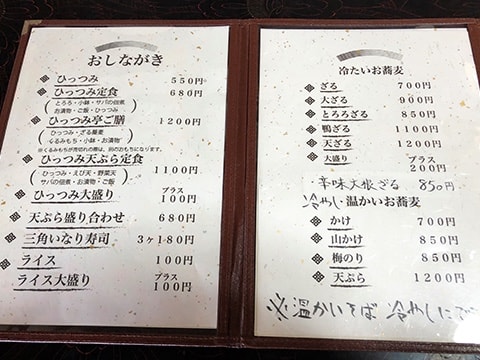 おしながき
ひっつみ 550円
ひっつみ定食 680円
(とろろ・小鉢・サバの佃煮
お漬物・ご飯・ひっつみ)
ひっつみ亭ご膳 1200円
(ひっつみ・ざる蕎麦
くるみもち・小鉢・お漬物)
※くるみもちが売切れの際は、別のおもちになります。
ひっつみ天ぷら定食 1100円
(ひっつみ・えび天・野菜天
サバの佃煮・お漬物・ご飯)
ひっつみ大盛り プラス100円
天ぷら盛り合わせ 680円
三角いなり寿司 3ヶ180円
ライス 100円
ライス大盛り プラス100円
冷たいお蕎麦
ざる 700円
大ざる 900円
とろろざる 850円
鴨ざる 1100円
天ざる 1200円
大盛り プラス200円
辛味大根ざる 850円
冷やし・温かいお蕎麦
かけ 700円
山かけ 850円
梅のり 850円
天ぷら 1200円
※温かいそば 冷やしにで